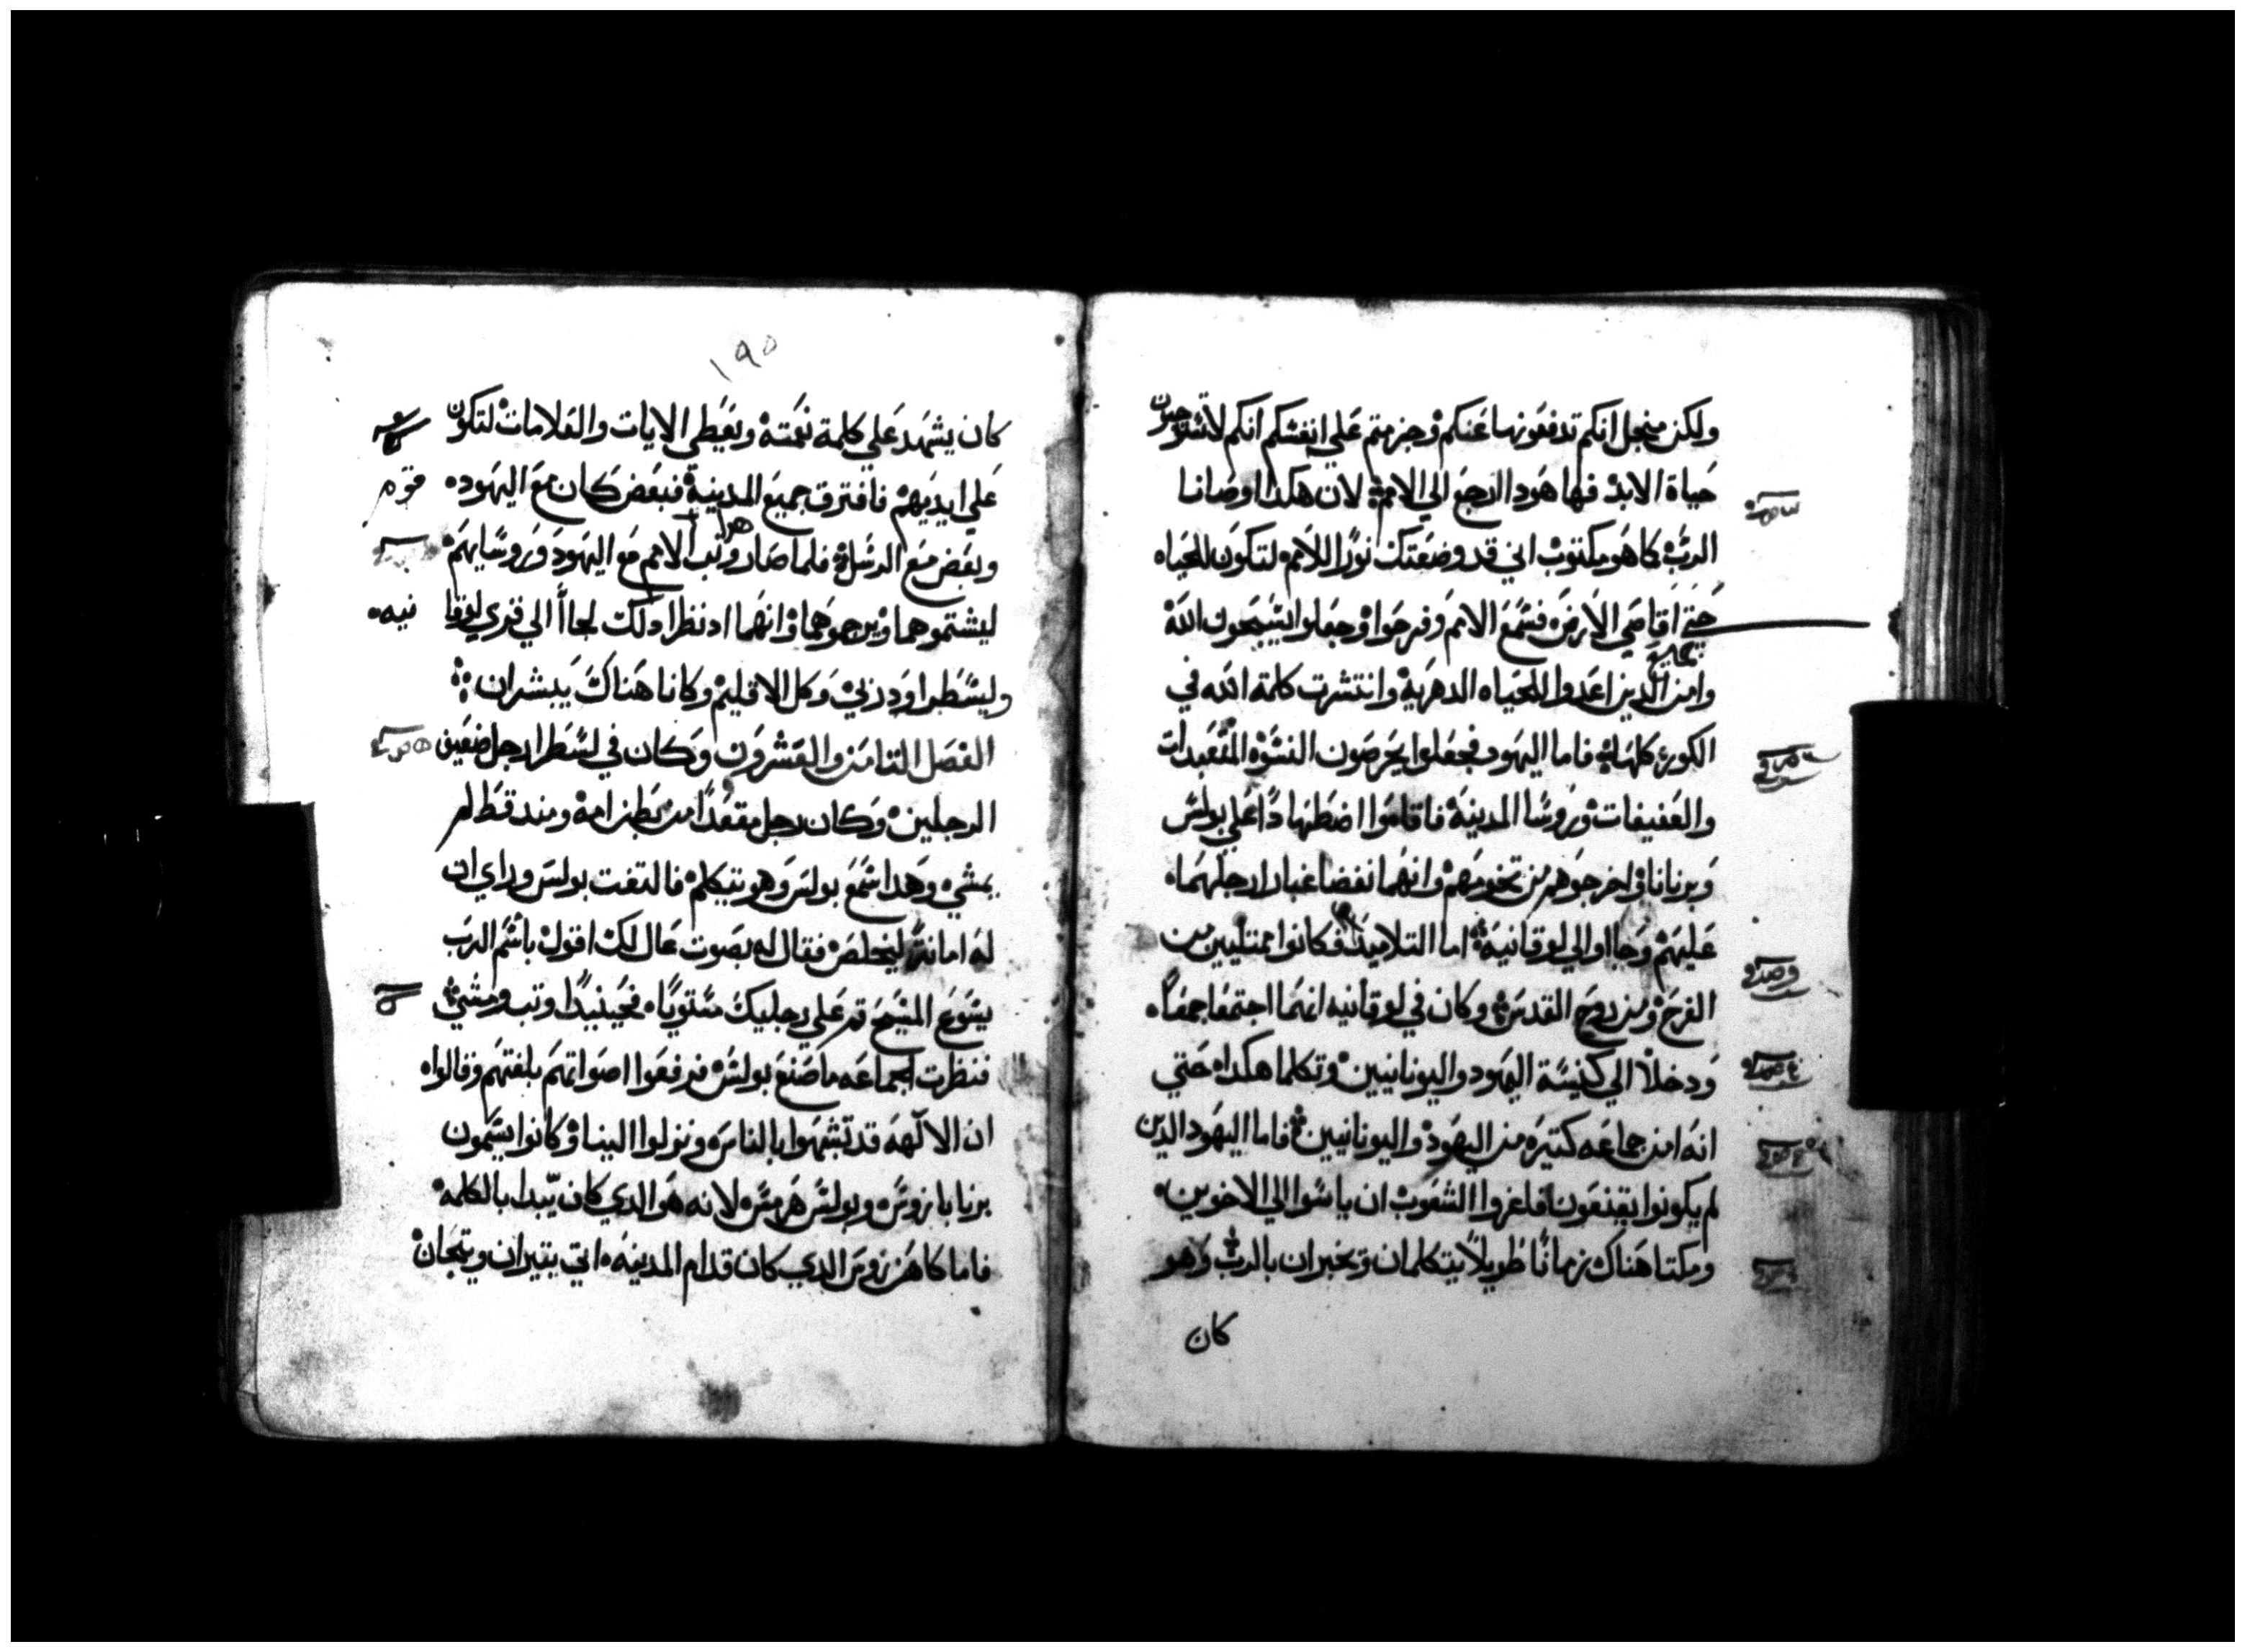 ولكن منجل انكم تدفعونها عنكم وجزمتم علي انفسكم انكم لاتستوجبون
حياة الابد فها هودا نرجع الي الامم لان هكدا اوصانا
الرب كما هو مكتوب اني قد وضعتك نورا للامم لتكون للحياه
حتي اقاصي الارض فسمع الامم وفرحوا وجعلوا يسبحون الله
وامن الدين اعدوا للحياه الدهرية وانتشرت كلمة الله في
الكورة كلها فاما اليهود فجعلوا يحرصون النسوه المتعبدات
والعفيفات وروسا المدينة فاقاموا اضطهادا علي بولس
وبرنابا واخرجوهم من تخومهم وانهما نفضا غبار ارجلهما
عليهم وجااوا الي لوقانية اما التلاميد فكانوا ممتليين من
الفرح ومن روح القدس وكان في لوقانيه انهما اجتمعا جمعا
ودخلا الي كنيسة اليهود واليونانيين وتكلما هكدا حتي
انه امن جماعه كتيره من اليهود واليونانيين فاما اليهود الدين
لم يكونوا يقنعون فاغروا الشعوب ان ياسوا الي الاخوين
ومكتا هناك زمانا طويلا يتكلمان ويخبران بالرب وهو
كان
١٩٥
كان يشهد علي كلمة نعمته ويعطي الايات والعلامات لتكون
علي ايديهم فافترق جميع المدينة فبعض كان مع اليهود
وبعض مع الرسل فلما صار وتب الامم مع اليهود وروسايهم
ليشتموهما ويرجموهما وانهما اد نظرا دلك لجاا الي قري لوقا
نيه
وليسطرا ودربي وكل الاقليم وكانا هناك يبشران
الفصل التامن والعشرون وكان في لسطرا رجل ضعيف
الرجلين وكان رجل مقعدا من بطن امه ومند قط لم
يمشي وهدا سمع بولس وهو يتكلم فالتفت بولس وراي ان
له امانة ليخلص فقال له بصوت عال لك اقول باسم الرب
يسوع المسيح قم علي رجليك مستويا فحينيدا وتب ومشي
فنظرت الجماعه ما صنع بولس فرفعوا اصواتهم بلغتهم وقالوا
ان الالهه قد تشبهوا بالناس ونزلوا الينا وكانوا يسمون
برنابا زوس وبولس هرمس لانه هو الدي كان يبدا بالكلمة
فاما كاهن زوس الدي كان قدام المدينه اتي بتيران وتيجان